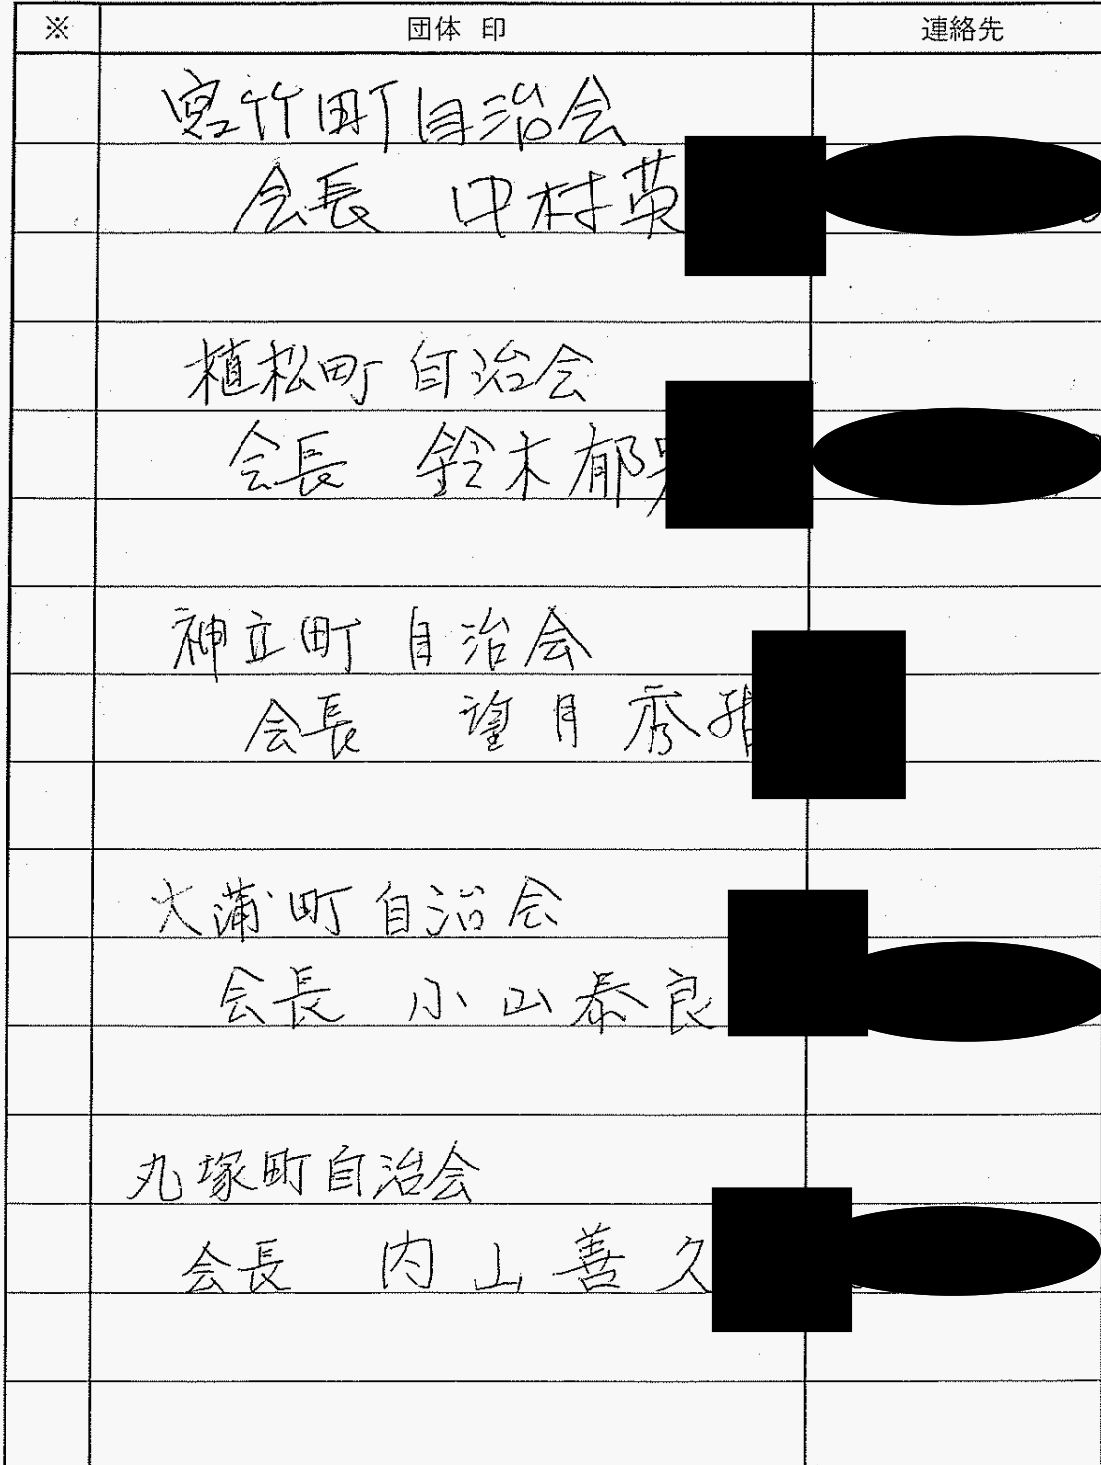 ※ 団体 印 連絡先
宮竹町自治会
会長 中村英
植松町自治会
会長 鈴木郁
神立町自治会
会長 望月秀
大蒲町自治会
会長 小山泰良
丸塚町自治会
会長 内山善久